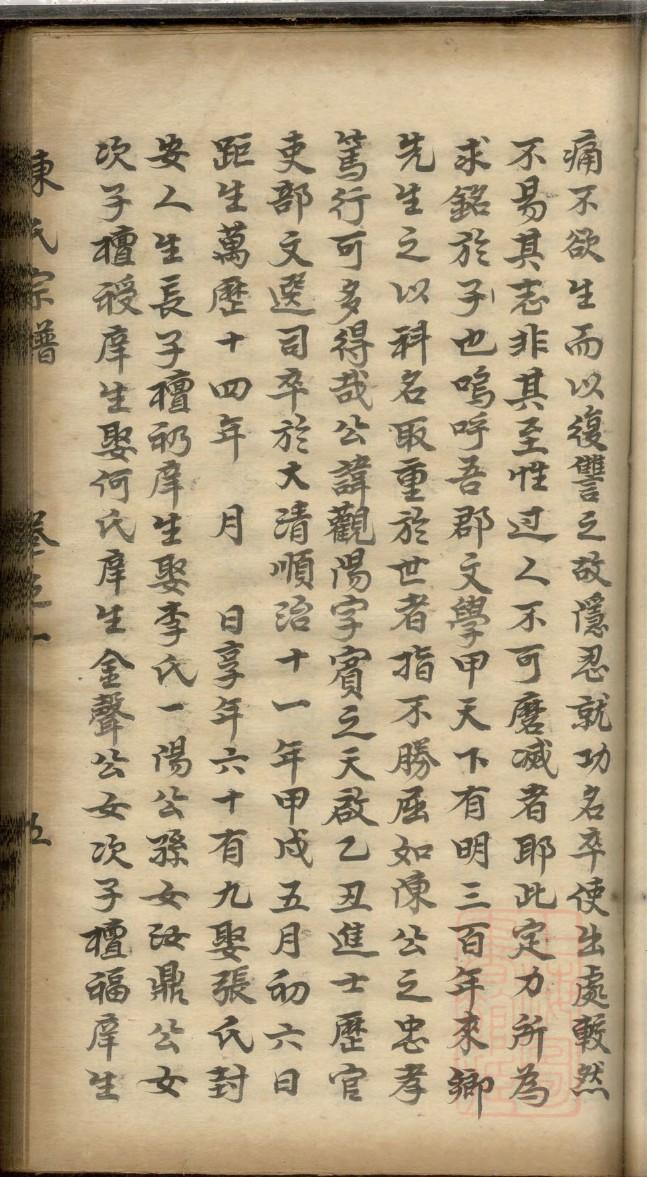 痛不欲生而以復讐之故隱忍就功名卒使出處較然
不易其志非其至性过人不可磨滅者耶此定力所為
求銘於子也嗚呼吾郡文學甲天下有明三百年来鄉
先生之以科名取重於世者指不勝屈如陳公之忠孝
篤行可多得哉公諱觀陽字賓之天啟乙丑進士歷官
吏部文选司卒於大清順治十一年甲戌五月初六日
距生萬歷十四年 月 日享年六十有九娶張氏封
安人生長子檀礽庠生娶李氏一陽公孫女汝鼎公女
次子檀禔庠生娶何氏庠生金聲公女次子檀福庠生
陳氏宗譜 卷之一 五